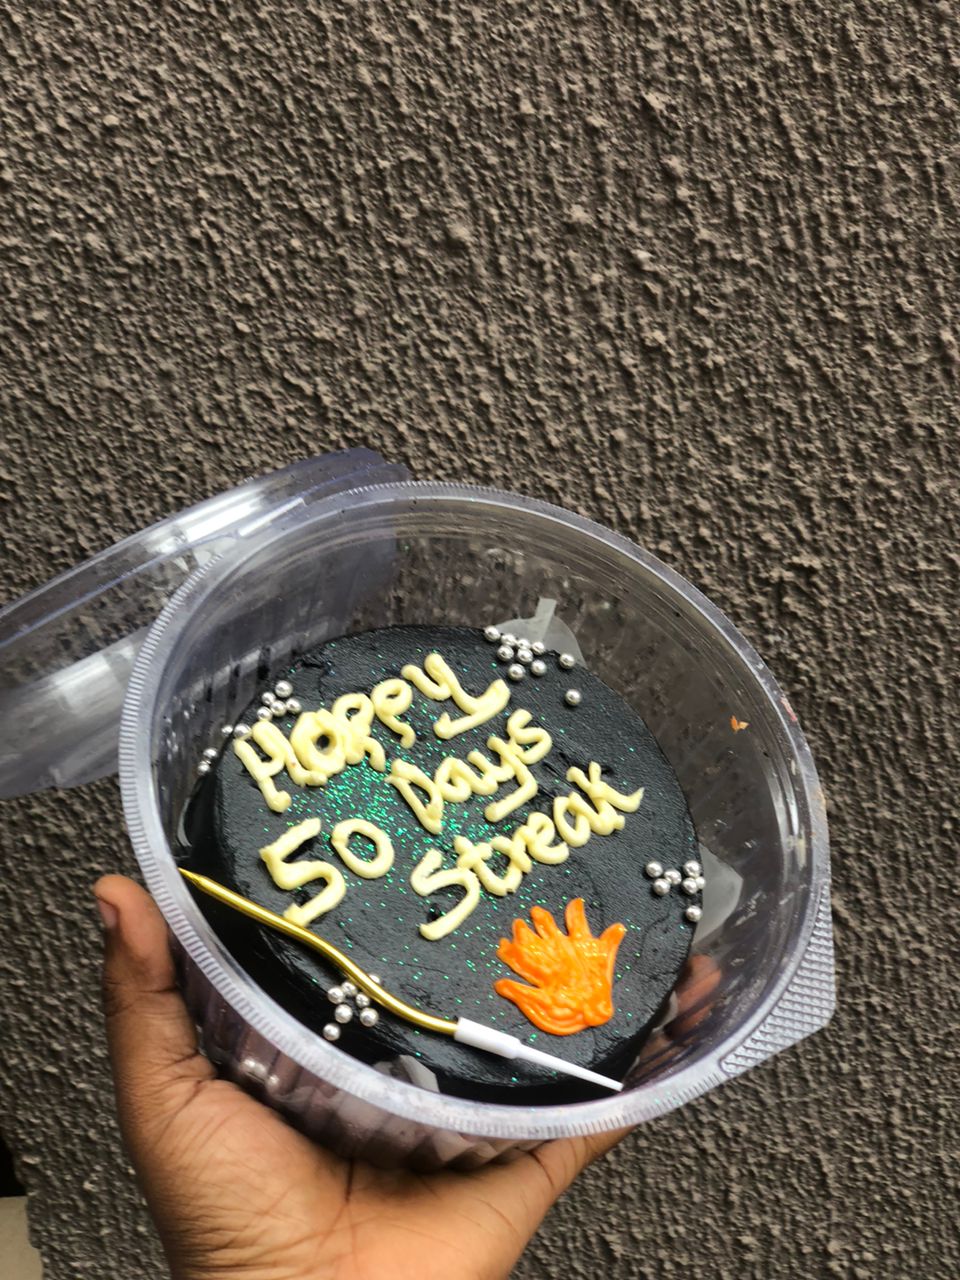 Happy
50 Days
Streak